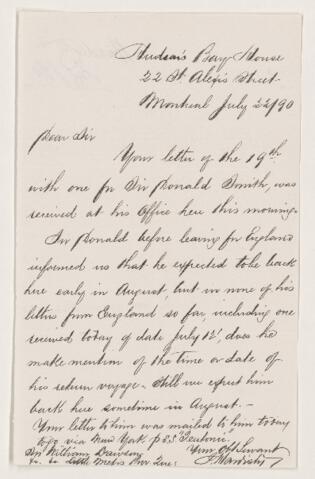 Hudson's Bay House
22 St Alexis Street
Montreal July 22/90
Dear Sir
Your letter of the 19th
with one for Sir Donald Smith, was
received at his Office here this morning.
Sir Donald before leaving for England
informed us that he expected to be back
here early in August, but in none of his
letters from England so far, including one
received today of date July 12, does he
make mention of the time or date of
his return voyage. Still we expect him
back here sometime in August.
Your letter to him was mailed to him today
to go via New York p SS "Teutonic".
Your Obt Servant
Sir William Dawson
Little Metis Prov Que: